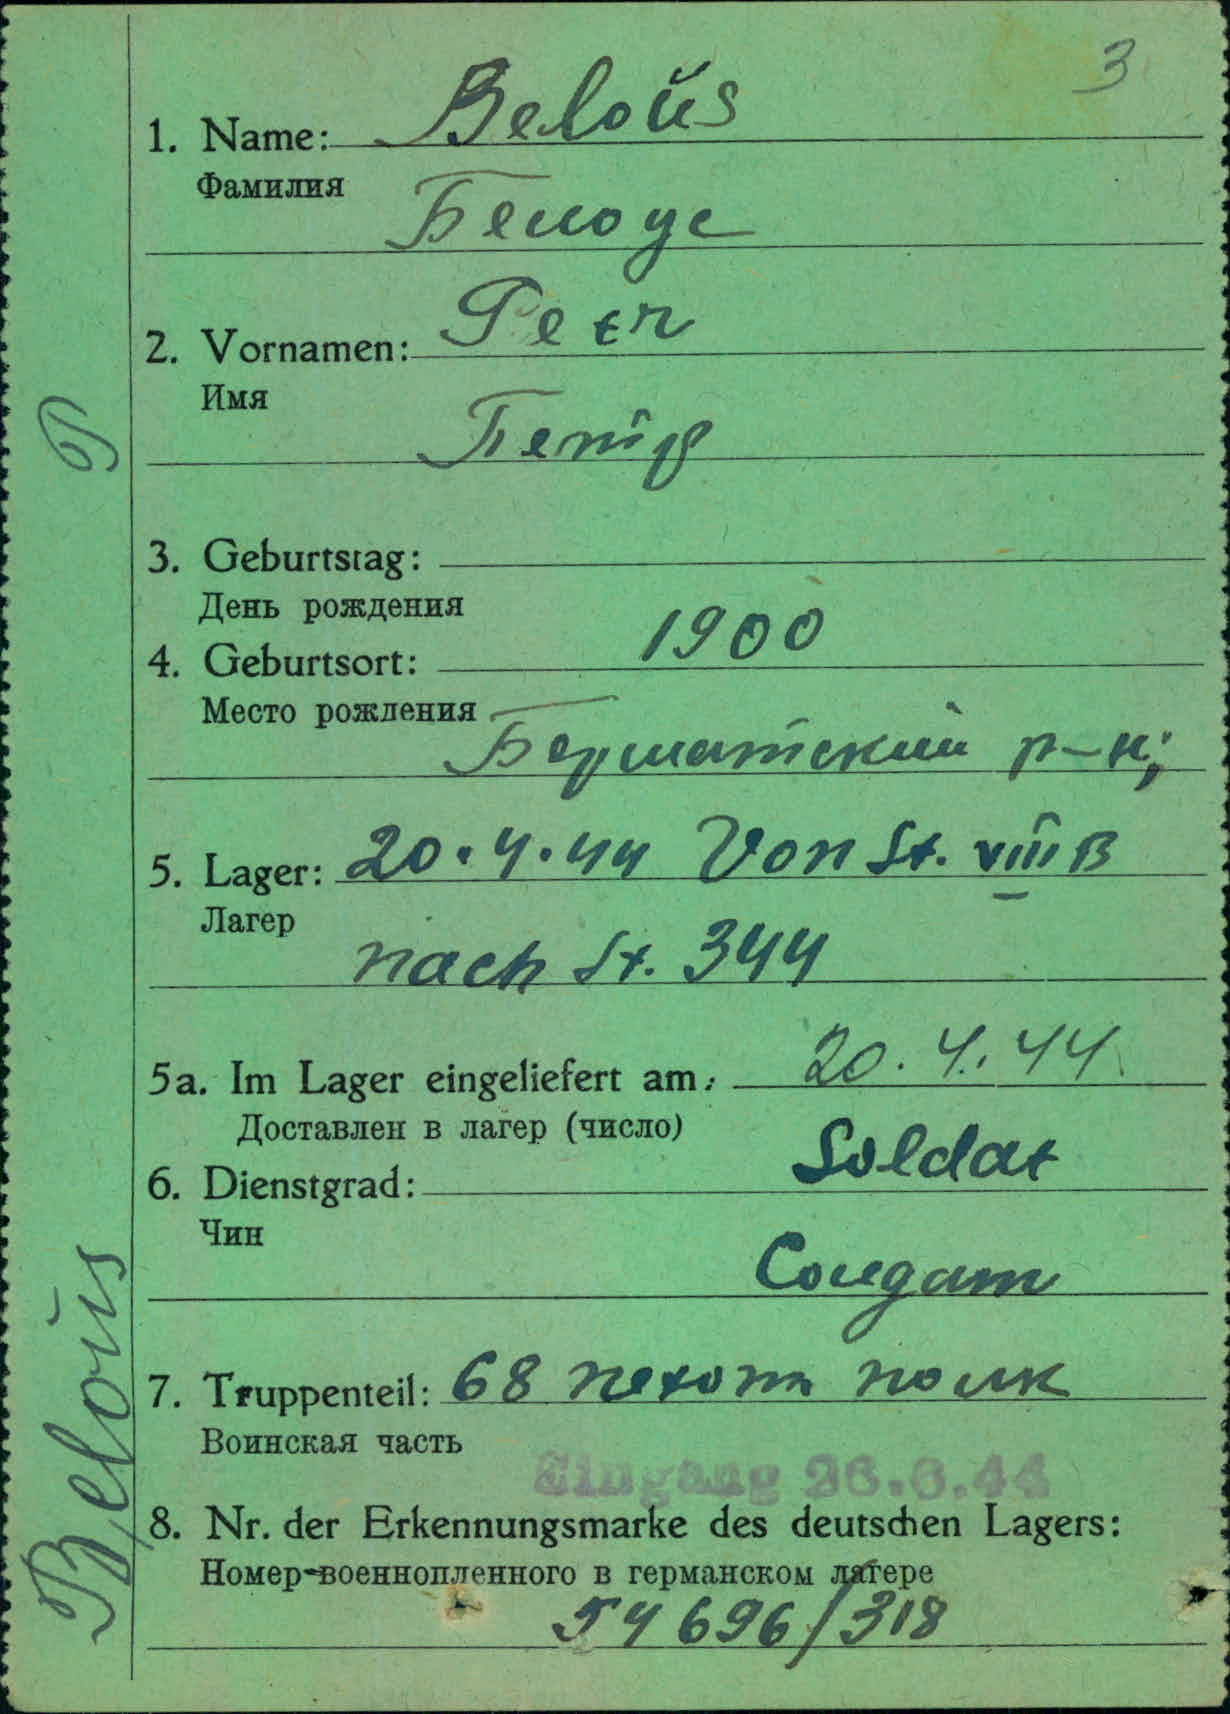 3
1. Name: Beloŭs
Фамилия
Белоус
2. Vornamen: Petr
Имя
Петр
3. Geburtstag:
День рождения
1900
4. Geburtsort:
Место рождения
р-н;
5. Lager: 20.4.44 Von St. VIII B
Лагер
nach St. 344
5a. Im Lager eingeliefert am: 20.4.44
Доставлен в лагер (число)
6. Dienstgrad: Soldat
Чин
Солдат
7. Truppenteil: 68 пехотн полк
Воинская часть
Eingang 26.6.44
8. Nr. der Erkennungsmarke des deutschen Lagers:
Номер военнопленного в германском лагере
54696/318
P
Beloŭs